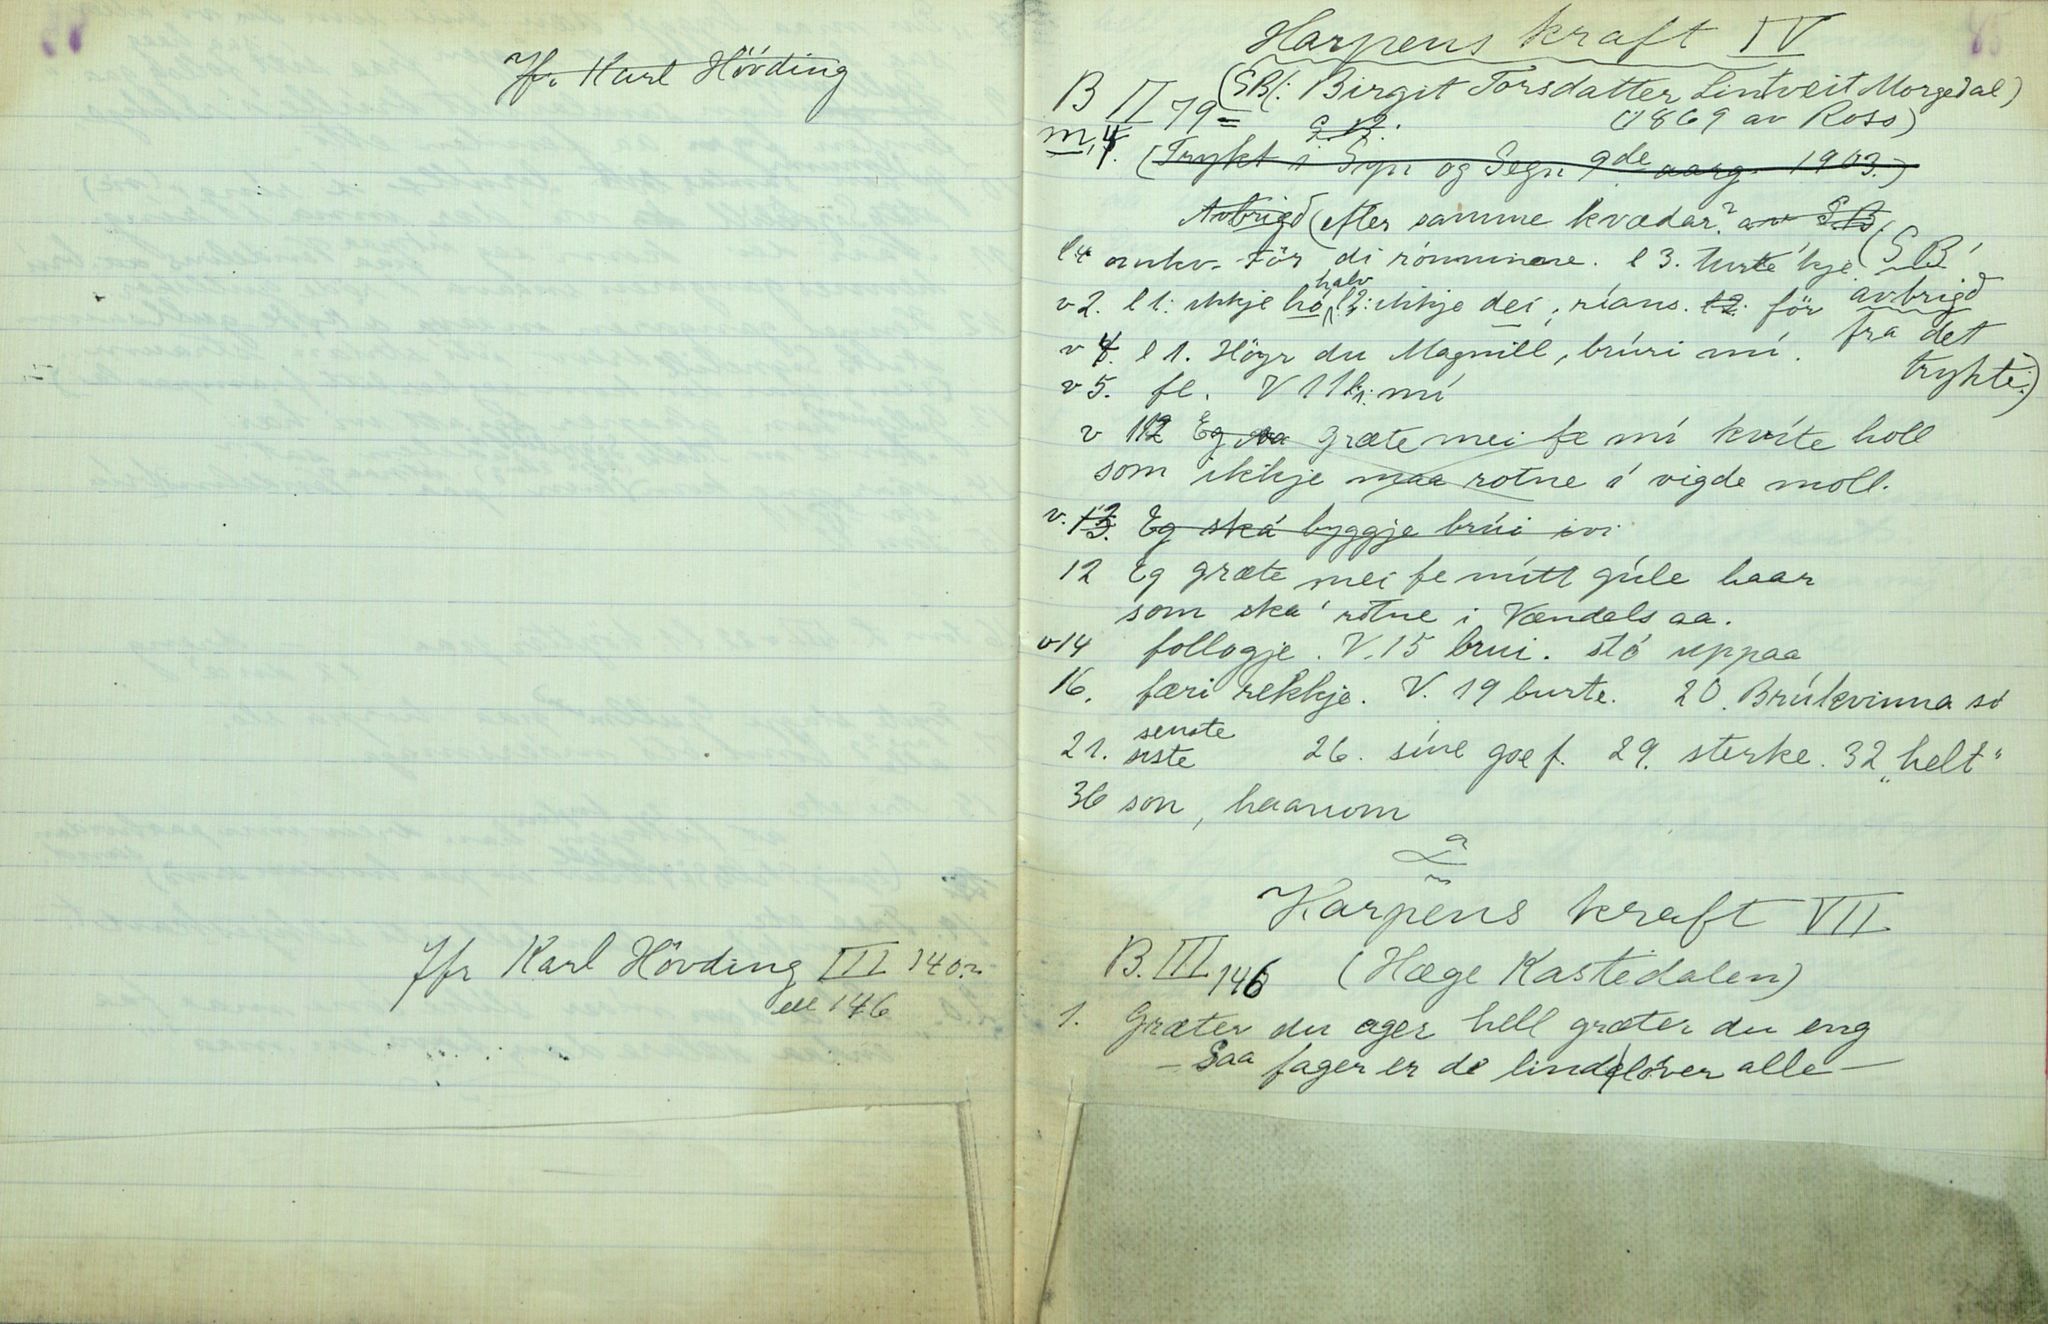 Jfr Karl Hövding
Jfr Karl Hövding III 140.
ell 146
85
Harpens kraft IV
B II 79 = (SB: Birgit Torsdatter Lintveit Morgedal)
(1869 av Ross)
(Trykt i Syn og Segn 9de aarg. 1903.)
Avbrigd (etter samme kvædar? av S.B.
l4 omkv. för di rónninne. l 3. turte'kje (SB'
avbrigd
fra det
trykte.)
v 2. l 1: ikkje hó, halv l 2: ikkje dei, ríans. för
v 4. l 1. Höyr du Magnill, brúri mí.
v 5. fe. V 11 l. 1. mí
v 12 Eg græte mei fe mí kvíte holl
som ikkje maa rotne i vigde moll.
v. 13. Eg ská byggje brúi ivi
12 Eg græte mei fe mítt gúle haar
som ska' rotne i Vændels aa.
v 14 follogje. V. 15 brui. stó uppaa
16. færi rekkje. V. 19 burte. 20. Brúkvinna so
21. senste
siste 26. síne goe f. 29. sterke. 32 „helt"
36 son, haanom
Harpens kraft VII
B. III 146 (Hæge Kastedalen)
1. Græter du ager hell græter du eng
— Saa fager er de lindelöver alle —